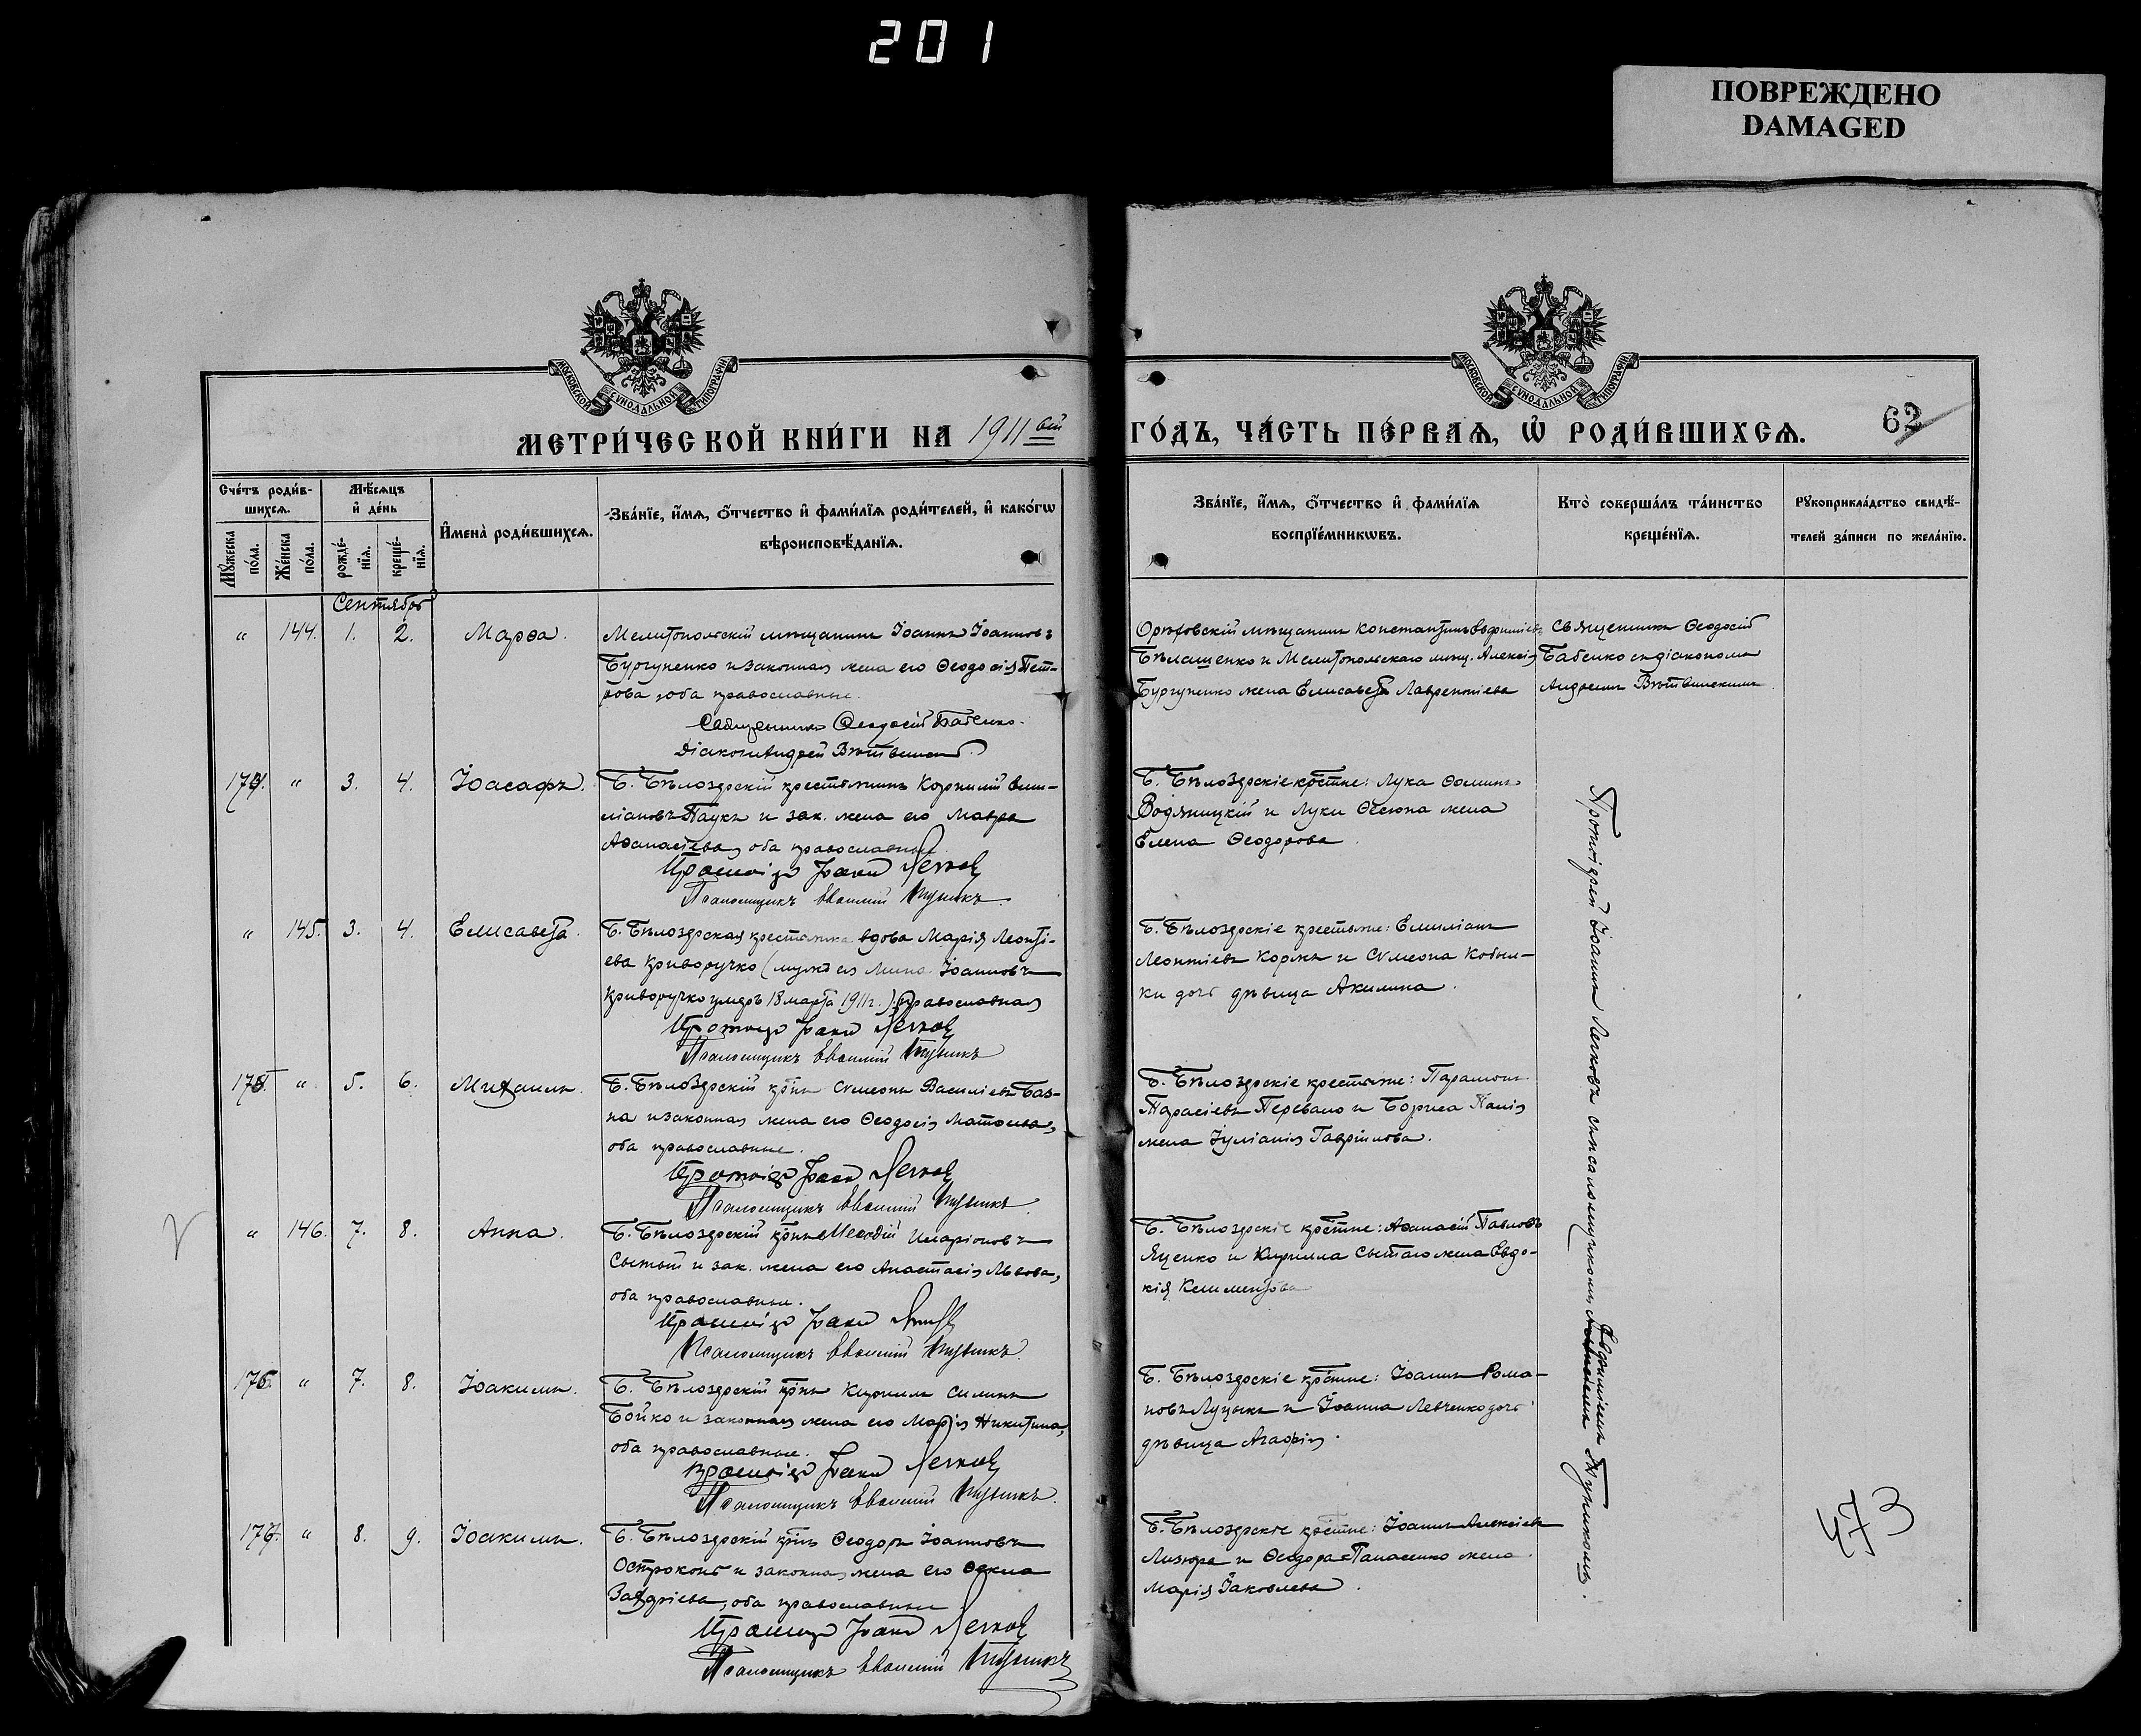 201
ПОВРЕЖДЕНО
DAMAGED
МОСКОВСКОЙ СУНОДАЛЬНОЙ ТИПОГРАФІИ
МОСКОВСКОЙ СУНОДАЛЬНОЙ ТИПОГРАФІИ
МЕТРИ́ЧЕСКОЙ КНИ́ГИ НА 1911ый
ГО́ДЪ, ЧА́СТЬ ПЕ́РВАѦ, Ѿ РОДИ́ВШИХСѦ.
62
Сче́тъ роди́в-
шихсѧ.
Мꙋ́жеска по́ла.
Же́нска по́ла.
Мѣ́сѧцъ
и҆ де́нь
рожде́-
нїѧ.
креще́-
нїѧ.
И҆мена̀ роди́вшихсѧ.
Зва́нїе, и҆́мѧ, ѻ҆́тчество и҆ фами́лїѧ роди́телей, и҆ како́гѡ
вѣроисповѣ́данїѧ.
Зва́нїе, и҆́мѧ, ѻ҆́тчество и҆ фами́лїѧ
воспрїе́мникѡвъ.
Кто̀ соверша́лъ та́инство
креще́нїѧ.
Рꙋкоприкла́дство свидѣ́-
телей за́писи по жела́нїю.
Сентябрь
" 144. 1. 2. Марѳа.
Мелитопольскій мѣщанинъ Іоаннъ Іоанновъ
Бургуненко и законная жена его Ѳеодосія Пет-
рова, оба православные.
Священникъ Ѳеодосій Бабенко.
Діаконъ Андрей
Орѣховскій мѣщанинъ Константинъ Евфиміевъ
Бѣлашенко и Мелитопольскаго мѣщ. Алексія
Бургуненко жена Елисавета Лаврентіева
Священникъ Ѳеодосій
Бабенко съ діакономъ
Андреемъ
174. " 3. 4. Іоасафъ.
Б. Бѣлозерскій крестьянинъ Корнилій Еми-
ліановъ Паукъ и зак. жена его Мавра
Аѳанасіева, оба православные
Протоіер Іоанн Легков
Псаломщикъ Евѳимій
Б. Бѣлозерскіе крестне: Лука Ѳоминъ
Водяницкій и Луки Ѳесюна жена
Елена Ѳеодорова.
" 145. 3. 4. Елисавета.
Б. Бѣлозерская крестьянка вдова Марія Леонті-
ева Криворучко (мужъ ея Мина Іоанновъ
Криворучко умеръ 18 марта 1911 г.), православная
Протоіер Іоанн Легков
Псаломщикъ Евѳимій
Б. Бѣлозерскіе крестьяне: Емиліанъ
Леонтіевъ Коржъ и Сѵмеона Кобыл-
ки дочь дѣвица Акилина.
175. " 5. 6. Михаилъ.
Б. Бѣлозерскій крнъ Сѵмеонъ Василіевъ Баз-
на и законная жена его Ѳеодосія Матѳіева,
оба православные.
Протоіер Іоанн Легков
Псаломщикъ Евѳимій
Б. Бѣлозерскіе крестьяне: Парамонъ
Тарасіевъ Перевало и Бориса Палія
жена Іуліанія Гавріилова.
" 146. 7. 8. Анна.
Б. Бѣлозерскій крнъ Меѳодій Иларіоновъ
Сытый и зак. жена его Анастасія Львова,
оба православные.
Протоіер Іоанн
Псаломщикъ Евѳимій
Б. Бѣлозерскіе крестне: Аѳанасій Павловъ
Яценко и Кирилла Сытаго жена Евдо-
кія Климентова
176. " 7. 8. Іоакимъ.
Б. Бѣлозерскій крнъ Кириллъ Силинъ
Бойко и законная жена его Марія Никитина,
оба православные.
Протоіер Іоанн Легков
Псаломщикъ Евѳимій
Б. Бѣлозерскіе крестне: Іоаннъ Рома-
новъ Луцыкъ и Іоанна Левченко дочь
дѣвица Агафія.
177. " 8. 9. Іоакимъ.
Б. Бѣлозерскій крнъ Ѳеодоръ Іоанновъ
Остроконь и законная жена его Ѳекла
оба православные
Протоіер Іоанн Легков
Псаломщикъ Евѳимій
Б. Бѣлозерскіе крестне: Іоаннъ Алексіевъ
Лизюра и Ѳеодора Панасенко жена
Марія Іаковлева.
Протоіерей Іоаннъ Легковъ съ псаломщикомъ Евѳиміемъ
473